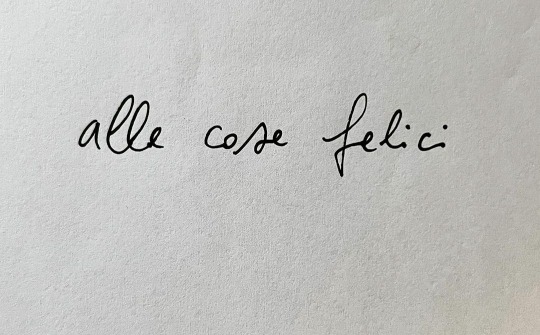 alle cose felici